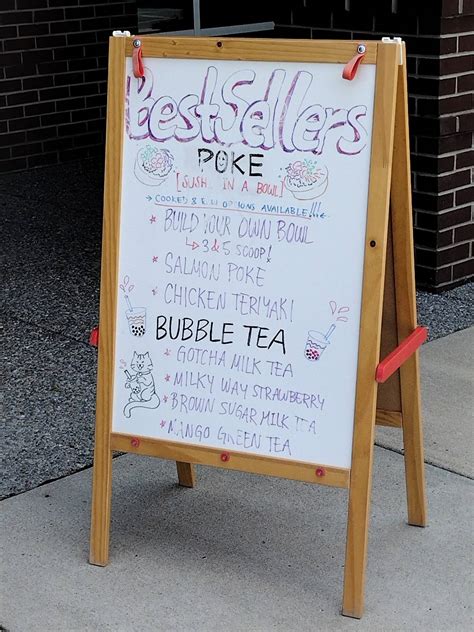 Best Sellers
POKE
[SUSHI IN A BOWL]
COOKED & RAW OPTIONS AVAILABLE!!!
* BUILD YOUR OWN BOWL
↳ 3 & 5 SCOOP!
* SALMON POKE
* CHICKEN TERIYAKI
BUBBLE TEA
* GOTCHA MILK TEA
* MILKY WAY STRAWBERRY
* BROWN SUGAR MILK TEA
* MANGO GREEN TEA